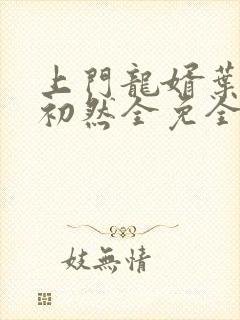 上門龍婿葉
初然全免全
妓無情